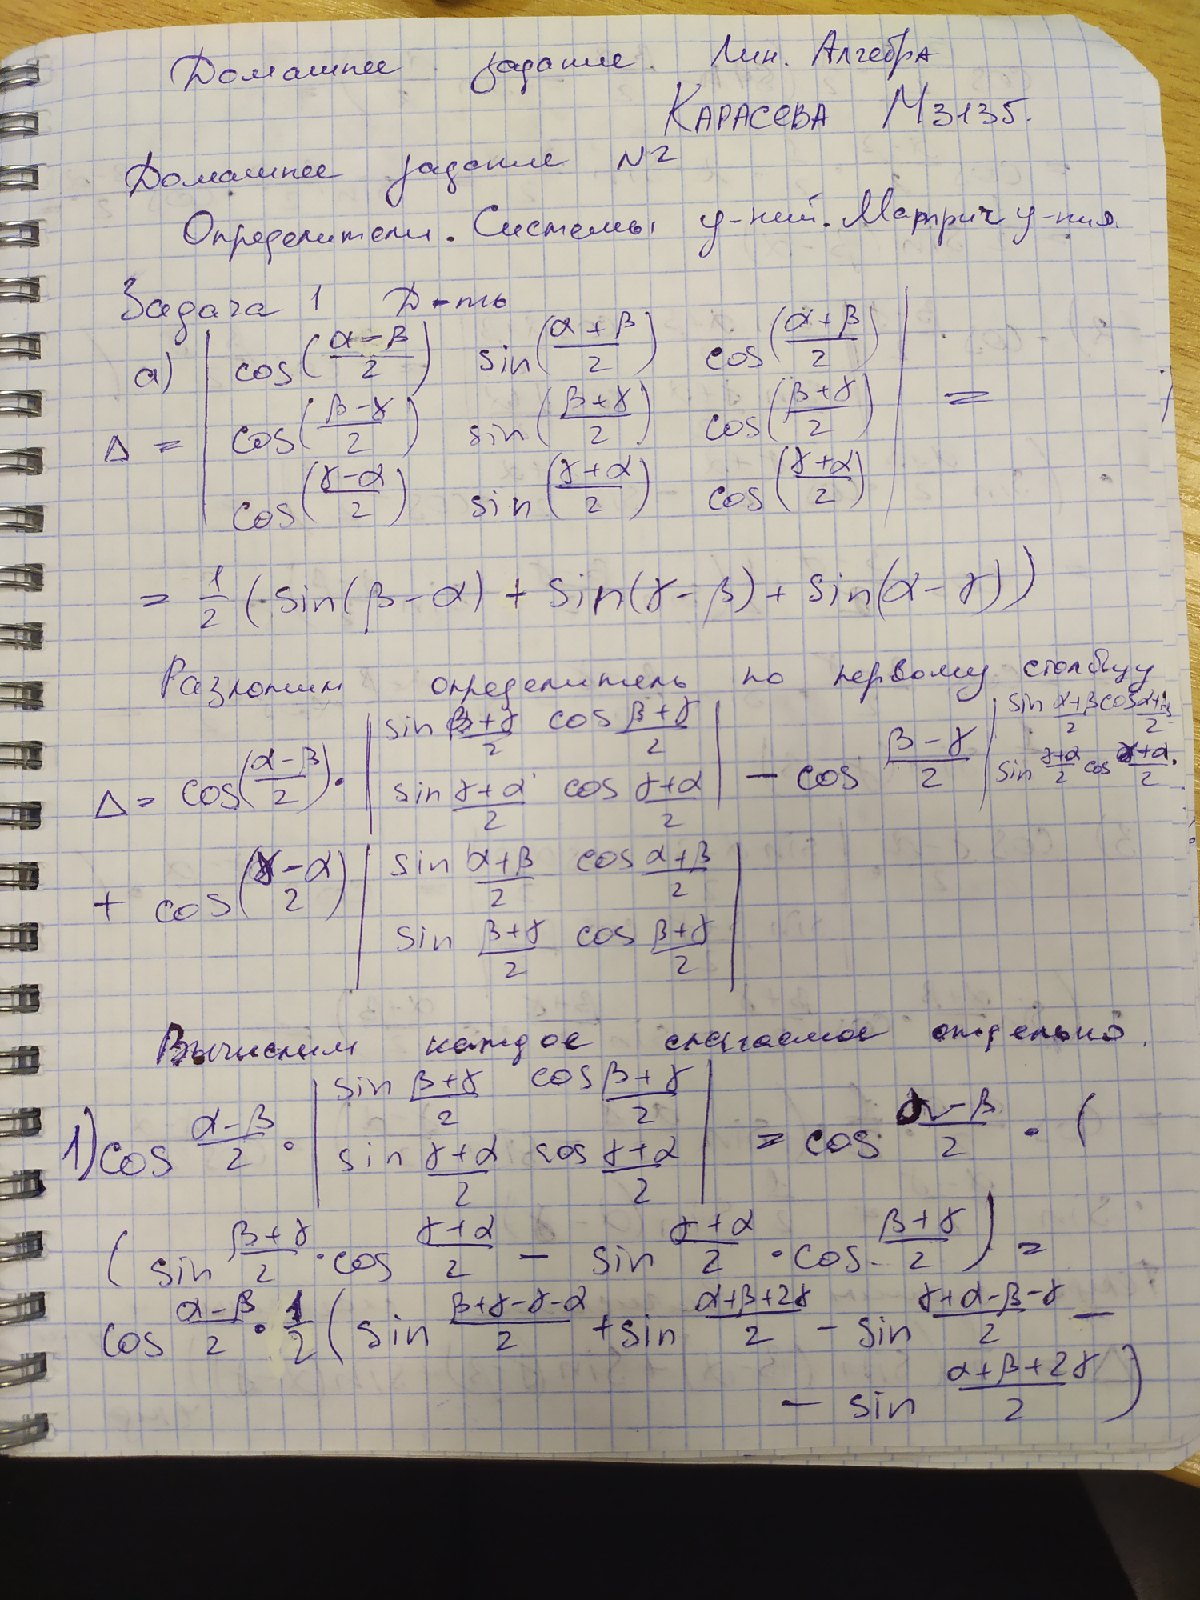 Домашнее задание. Лин. Алгебра
КАРАСЕВА М3135.
Домашнее задание №2
Определители. Системы у-ний. Матрич у-ния.
Задача 1 Д-ть
а) Δ = | cos((α-β)/2) sin((α+β)/2) cos((α+β)/2) |
| cos((β-γ)/2) sin((β+γ)/2) cos((β+γ)/2) | =
| cos((γ-α)/2) sin((γ+α)/2) cos((γ+α)/2) |
= 1/2 (sin(β-α) + sin(γ-β) + sin(α-γ))
Разложим определитель по первому столбцу
Δ = cos((α-β)/2) · | sin (β+γ)/2 cos (β+γ)/2 ; sin (γ+α)/2 cos (γ+α)/2 | - cos (β-γ)/2 | sin (α+β)/2 cos (α+β)/2 ; sin (γ+α)/2 cos (γ+α)/2 |
+ cos((γ-α)/2) | sin (α+β)/2 cos (α+β)/2 ; sin (β+γ)/2 cos (β+γ)/2 |
Вычислим каждое слагаемое отдельно.
1) cos (α-β)/2 · | sin (β+γ)/2 cos (β+γ)/2 ; sin (γ+α)/2 cos (γ+α)/2 | = cos (α-β)/2 · (
( sin (β+γ)/2 · cos (γ+α)/2 - sin (γ+α)/2 · cos (β+γ)/2 ) =
cos (α-β)/2 · 1/2 ( sin (β+γ-γ-α)/2 + sin (α+β+2γ)/2 - sin (γ+α-β-γ)/2 -
- sin (α+β+2γ)/2 )